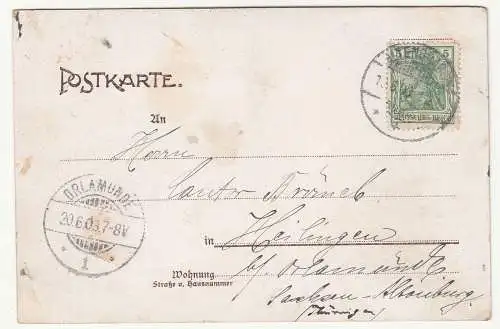 POSTKARTE.
5
DEUTSCHES REICH
An
Herrn
Cantor
ORLAMÜNDE
20.6.03.7-8V
1
in Heilingen
b/. Orlamünde
Wohnung
Straße u. Hausnummer
Sachsen-Altenburg
(Thüringen)